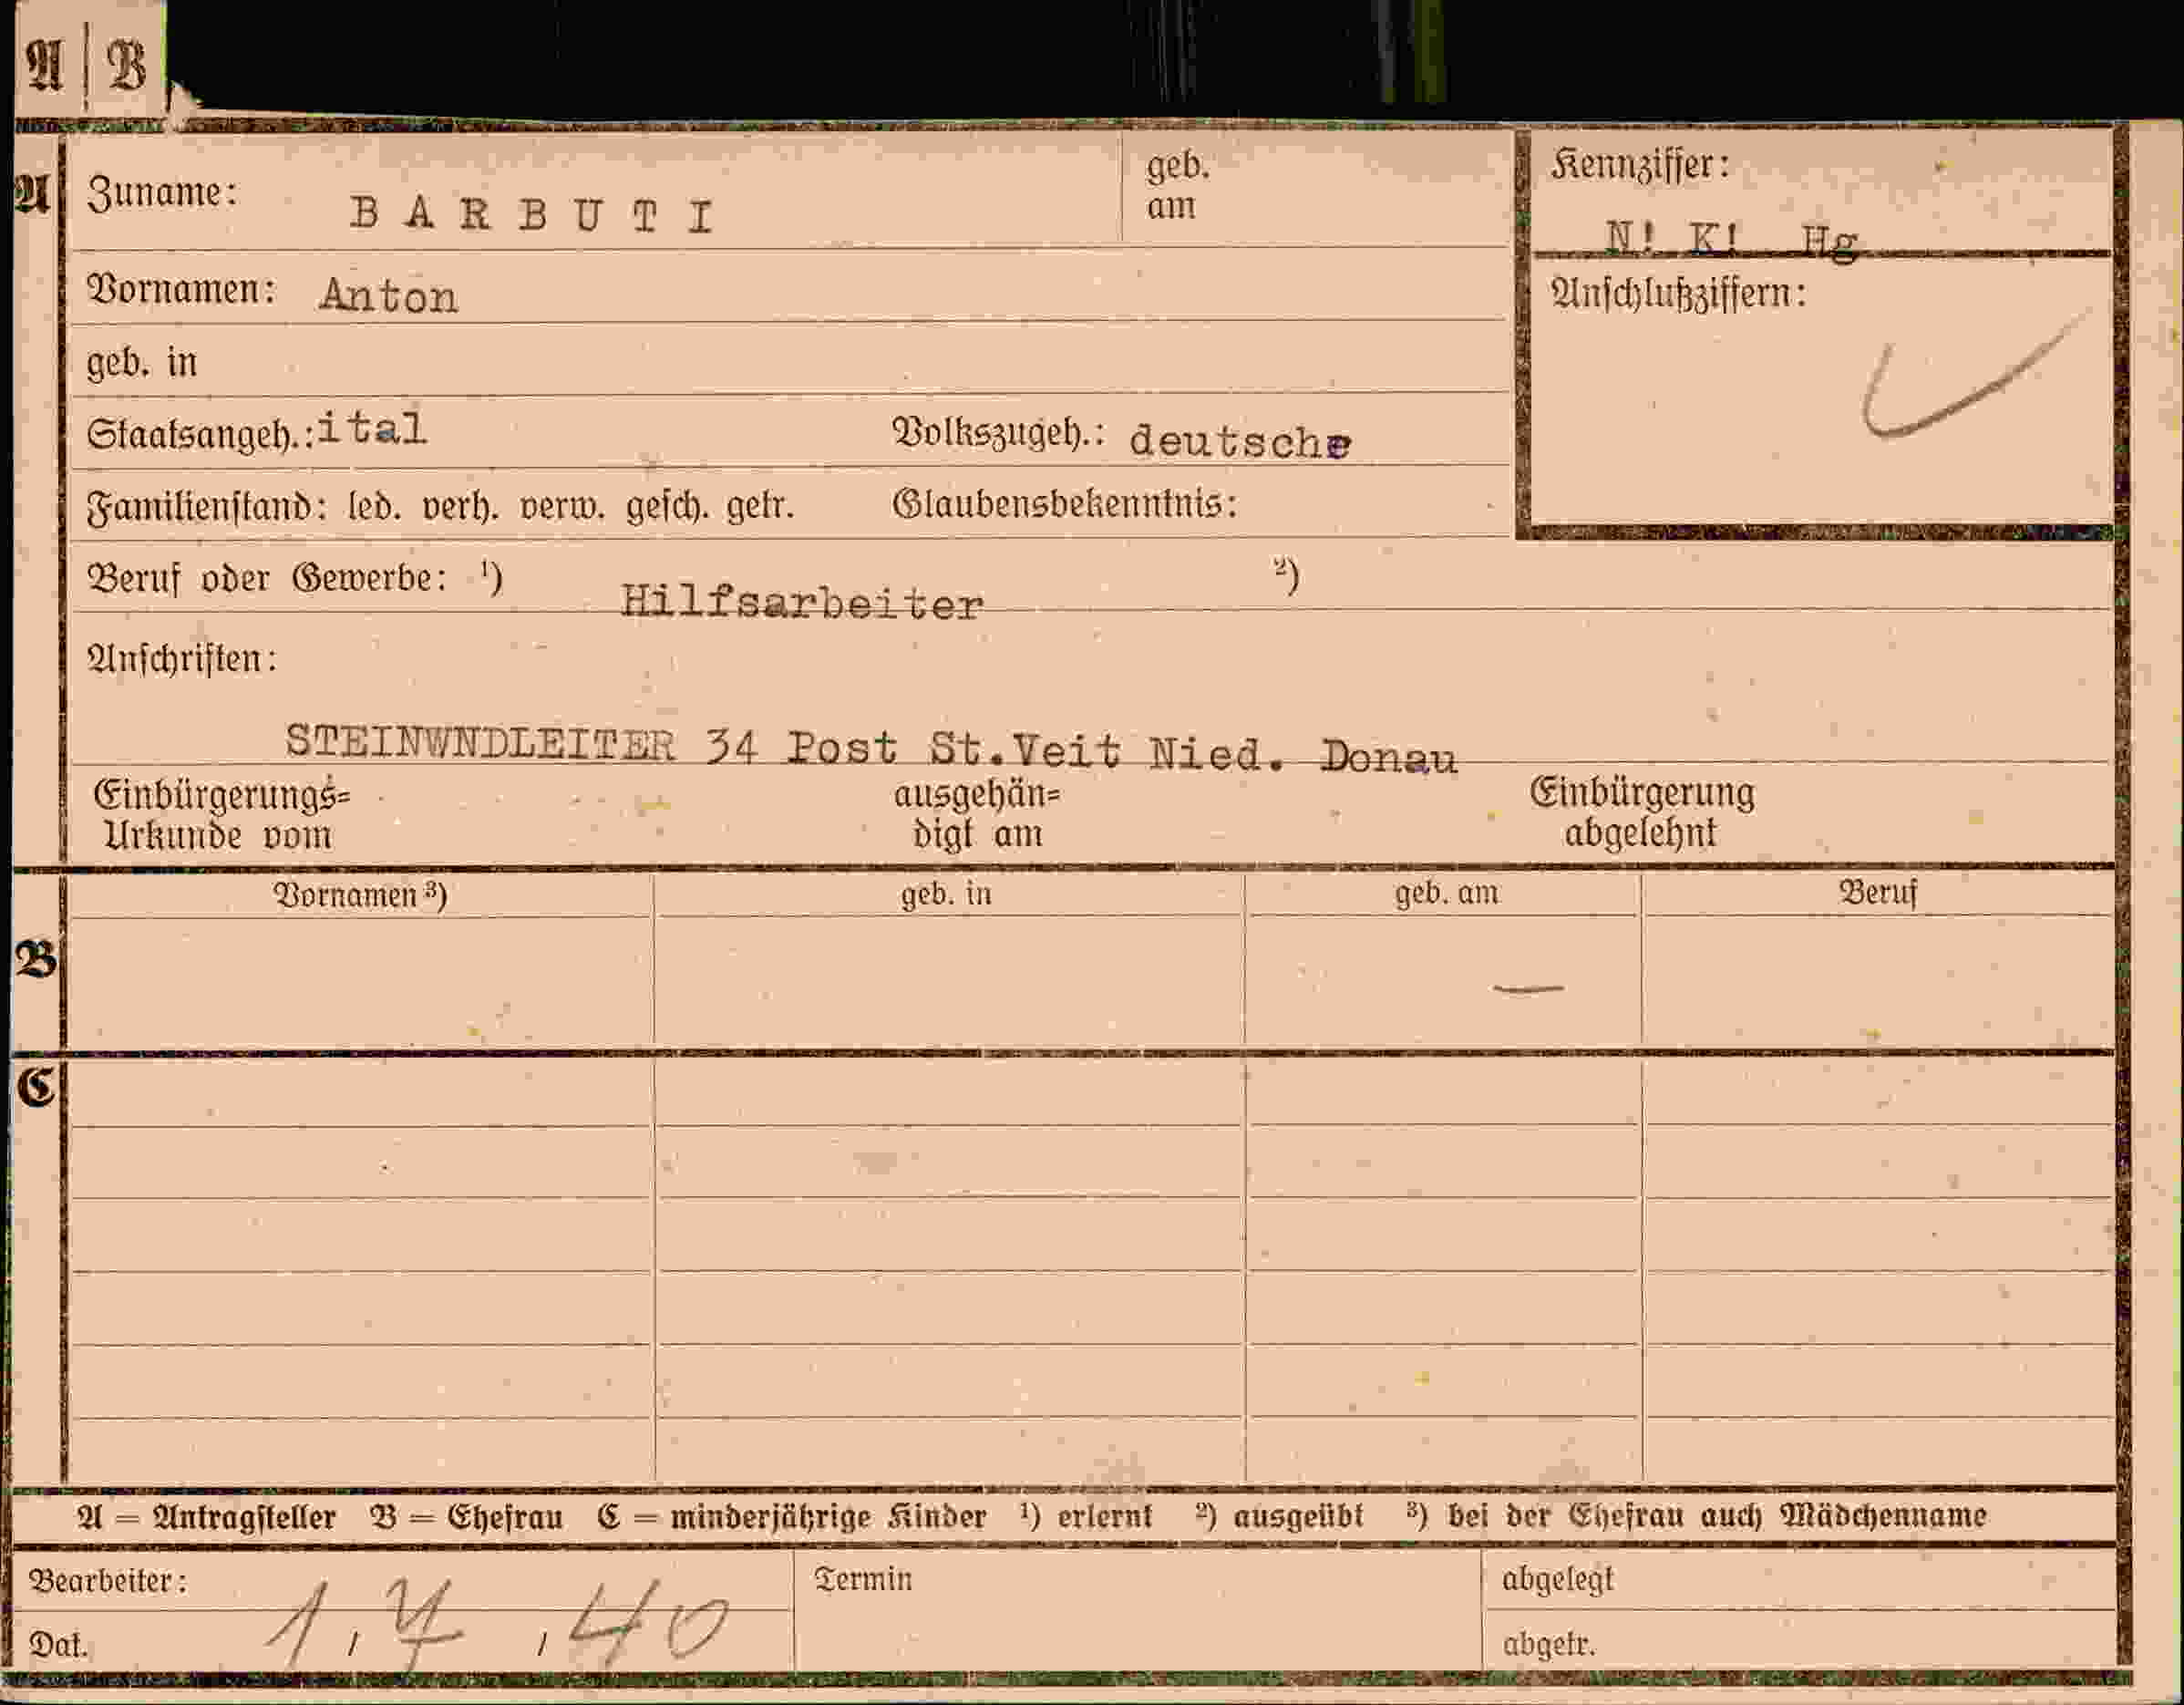 A | B
A
Zuname: BARBUTI
geb. am
Kennziffer:
N! K! Hg
Vornamen: Anton
Anschlußziffern:
geb. in
Staatsangeh.: ital Volkszugeh.: deutsche
Familienstand: led. verh. verw. gesch. getr. Glaubensbekenntnis:
Beruf oder Gewerbe: ¹) Hilfsarbeiter ²)
Anschriften:
STEINWNDLEITER 34 Post St.Veit Nied. Donau
Einbürgerungs= ausgehän= Einbürgerung
Urkunde vom digt am abgelehnt
Vornamen ³) geb. in geb. am Beruf
B
—
C
A = Antragsteller B = Ehefrau C = minderjährige Kinder ¹) erlernt ²) ausgeübt ³) bei der Ehefrau auch Mädchenname
Bearbeiter: Termin abgelegt
Dat. 1, 7, 40 abgetr.